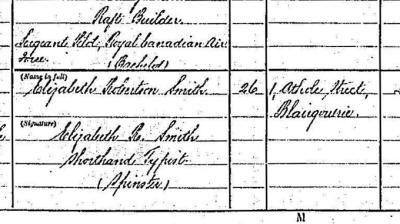 Raft Builder.
Sergeant Pilot, Royal Canadian Air
Force.
(Bachelor)
(Name in full)
Elizabeth Robertson Smith
26
1, Athole Street,
Blairgowrie.
(Signature)
Elizabeth R. Smith
Shorthand Typist
(Spinster)
M